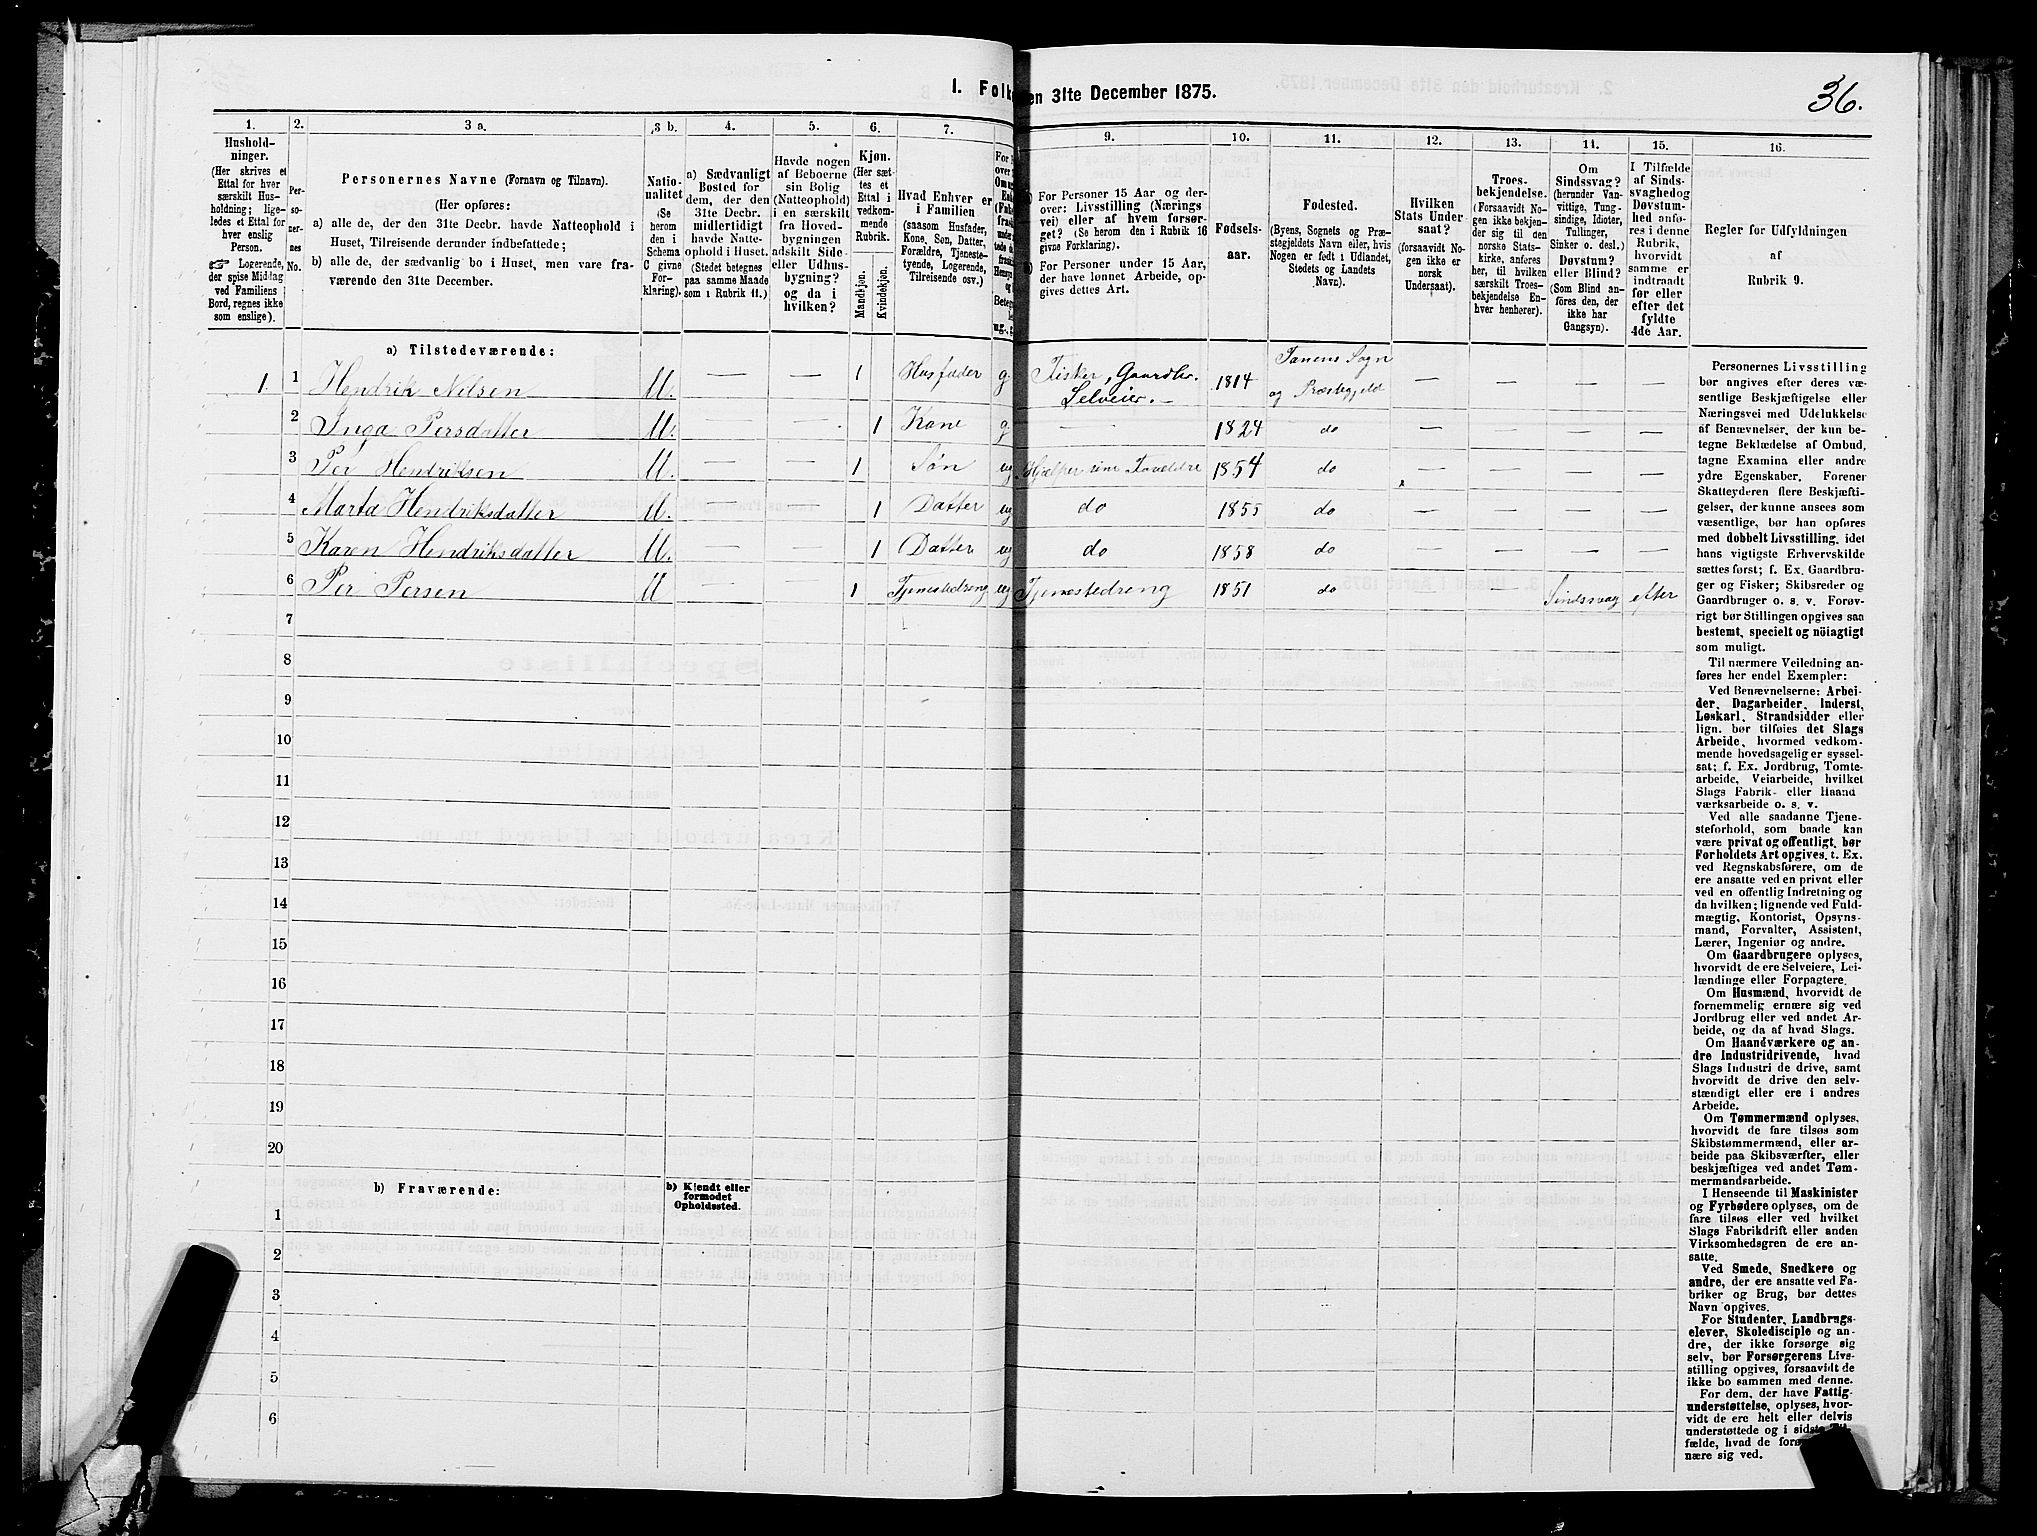 1. Folke
en 31te December 1875.
36.
1.
2.
3 a.
3 b.
4.
5.
6.
7.
9.
10.
11.
12.
13.
14.
15.
16.
Hushold-
ninger.
(Her skrives et
Ettal for hver
særskilt Hus-
holdning; lige-
ledes et Ettal for
hver enslig
Person.
☞ Logerende,
der spise Middag
ved Familiens
Bord, regnes ikke
som enslige).
Per-
so-
ner-
nes
No.
Personernes Navne (Fornavn og Tilnavn).
(Her opføres:
a) alle de, der den 31te Decbr. havde Natteophold i
Huset, Tilreisende derunder indbefattede;
b) alle de, der sædvanlig bo i Huset, men vare fra-
værende den 31te December.
Natio-
nalitet
(Se
herom
den i
Schema
C givne
For-
klaring).
a) Sædvanligt
Bosted for
dem, der den
31te Decbr.
midlertidigt
havde Natte-
ophold i Huset.
(Stedet betegnes
paa samme Maade
som i Rubrik 11.)
Havde nogen
af Beboerne
sin Bolig
(Natteophold)
i en særskilt
fra Hoved-
bygningen
adskilt Side-
eller Udhus-
bygning?
og da i
hvilken?
Kjøn.
(Her sæt-
tes et
Ettal i
vedkom-
mende
Rubrik.
Mandkjøn.
Kvindekjøn.
Hvad Enhver er
i Familien
(saasom Husfader,
Kone, Søn, Datter,
Forældre, Tjeneste-
tyende, Logerende,
Tilreisende osv.)
For Personer 15 Aar og der-
over: Livsstilling (Nærings
vei) eller af hvem forsør-
get? (Se herom den i Rubrik 16
givne Forklaring).
For Personer under 15 Aar,
der have lønnet Arbeide, op-
gives dettes Art.
Fødsels-
aar.
Fødested.
(Byens, Sognets og Præ-
stegjeldets Navn eller, hvis
Nogen er født i Udlandet,
Stedets og Landets
Navn).
Hvilken
Stats Under
saat?
(forsaavidt No-
gen ikke er
norsk
Undersaat).
Troes-
bekjendelse.
(Forsaavidt No-
gen ikke bekjen-
der sig til den
norske Stats-
kirke, anføres
her, til hvilken
særskilt Troes-
bekjendelse En-
hver henhører).
Om
Sindssvag?
(herunder Van-
vittige, Tung-
sindige, Idioter,
Tullinger,
Sinker o. desl.)
Døvstum?
eller Blind?
(Som Blind an-
føres den, der
ikke har
Gangsyn).
I Tilfælde
af Sinds-
svaghed og
Døvstum-
hed anfø-
res i denne
Rubrik,
hvorvidt
samme er
indtraadt
før eller
efter det
fyldte
4de Aar.
Regler for Udfyldningen
af
Rubrik 9.
a) Tilstedeværende:
1. 1 Hendrik Nilsen M. — — 1 Husfader g Fisker, Gaardbr. Selveier. — 1814 Tanens Sogn og Præstegjeld — — — —
2 Inga Persdatter M. — — 1 Kone g — 1824 do — — — —
3 Per Hendriksen M. — — 1 Søn ug Hjælper sine Forældre 1854 do — — — —
4 Marta Hendriksdatter M. — — 1 Datter ug do 1855 do — — — —
5 Karen Hendriksdatter M. — — 1 Datter ug do 1858 do — — — —
6 Per Persen M — 1 Tjenestedreng ug Tjenestedreng 1851 do — — Sindssvag efter
7
8
9
10
11
12
13
14
15
16
17
18
19
20
b) Fraværende:
b) Kjendt eller
formodet
Opholdssted.
1
2
3
4
5
6
Personernes Livsstilling
bør angives efter deres væ-
sentlige Beskjæftigelse eller
Næringsvei med Udelukkelse
af Benævnelser, der kun be-
tegne Beklædelse af Ombud,
tagne Examina eller andre
ydre Egenskaber. Forener
Skatteyderen flere Beskjæfti-
gelser, der kunne ansees som
væsentlige, bør han opføres
med dobbelt Livsstilling, idet
hans vigtigste Erhvervskilde
sættes først; f. Ex. Gaardbru-
ger og Fisker; Skibsreder og
Gaardbruger o. s. v. Forøv-
rigt bør Stillingen opgives saa
bestemt, specielt og nöiagtigt
som muligt.
Til nærmere Veiledning an-
føres her endel Exempler:
Ved Benævnelserne: Arbei-
der, Dagarbeider, Inderst,
Løskarl, Strandsidder eller
lign. bør tilføies det Slags
Arbeide, hvormed vedkom-
mende hovedsagelig er syssel-
sat; f. Ex. Jordbrug, Tomte-
arbeide, Veiarbeide, hvilket
Slags Fabrik- eller Haand
værksarbeide o. s. v.
Ved alle saadanne Tjene-
steforhold, som baade kan
være privat og offentligt, bør
Forholdets Art opgives, t. Ex.
ved Regnskabsførere, om de
ere ansatte ved en privat eller
ved en offentlig Indretning og
da hvilken; lignende ved Fuld-
mægtig, Kontorist, Opsyns-
mand, Forvalter, Assistent,
Lærer, Ingeniør og andre.
Om Gaardbrugere oplyses,
hvorvidt de ere Selveiere, Lei-
lændinge eller Forpagtere.
Om Husmænd, hvorvidt de
fornemmelig ernære sig ved
Jordbrug eller ved andet Ar-
beide, og da af hvad Slags.
Om Haandværkere og an-
dre Industridrivende, hvad
Slags Industri de drive, samt
hvorvidt de drive den selv-
stændigt eller ere i andres
Arbeide.
Om Tømmermænd oplyses,
hvorvidt de fare tilsøs som
Skibstømmermænd, eller ar-
beide paa Skibsværfter, eller
beskjæftiges ved andet Tøm-
mermandsarbeide.
I Henseende til Maskinister
og Fyrbødere oplyses, om de
fare tilsøs eller ved hvilket
Slags Fabrikdrift eller anden
Virksomhedsgren de ere an-
satte.
Ved Smede, Snedkere og
andre, der ere ansatte ved Fa-
briker og Brug, bør dettes
Navn opgives.
For Studenter, Landbrugs-
elever, Skoledisciple og an-
dre, der ikke forsørge sig
selv, bør Forsørgerens Livs-
stilling opgives, forsaavidt de
ikke bo sammen med denne.
For dem, der have Fattig-
understøttelse, oplyses, hvor-
vidt de ere helt eller delvis
understøttede og i sidste Til-
fælde, hvad de
nære sig ved.